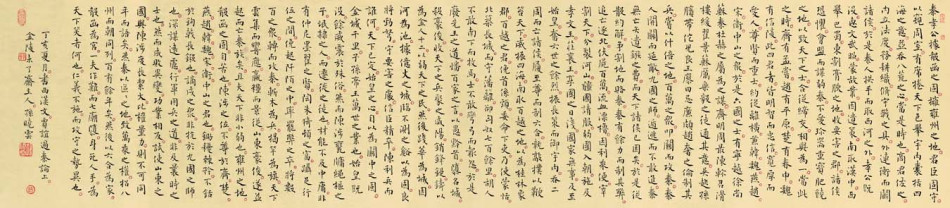 秦孝公據殽函之固擁雍州之地君臣固守
以窺周室有席卷天下包舉宇內囊括四
海之意并吞八荒之心當是時也商君佐之
內立法度務耕織修守戰之具外連衡而鬬
諸侯於是秦人拱手而取西河之外孝公既
沒惠文武昭襄蒙故業因遺策南取漢中西
舉巴蜀東割膏腴之地收要害之郡諸侯
恐懼會盟而謀弱秦不愛珍器重寶肥饒
之地以致天下之士合從締交相與為一當此
之時齊有孟嘗趙有平原楚有春申魏
有信陵此四君者皆明智而忠信寬厚而
愛人尊賢而重士約從離橫兼韓魏燕趙
宋衛中山之衆於是六國之士有甯越徐尚
蘇秦杜赫之屬為之謀齊明周最陳軫召滑
樓緩翟景蘇厲樂毅之徒通其意吳起孫
臏帶佗兒良王廖田忌廉頗趙奢之倫制其
兵嘗以什倍之地百萬之衆叩關而攻秦秦
人開關而延敵九國之師逡巡而不敢進秦
無亡矢遺鏃之費而天下諸侯已困矣於是從
散約解爭割地而賂秦秦有餘力而制其弊
追亡逐北伏屍百萬流血漂櫓因利乘便宰
割天下分裂河山彊國請服弱國入朝施及
孝文王莊襄王享國之日淺國家無事及至
始皇奮六世之餘烈振長策而御宇內吞二
周而亡諸侯履至尊而制六合執敲撲以鞭
笞天下威振四海南取百越之地以為桂林象
郡百越之君俛首係頸委命下吏乃使蒙恬
北築長城而守藩籬卻匈奴七百餘里胡人
不敢南下而牧馬士不敢彎弓而報怨於是
廢先王之道焚百家之言以愚黔首隳名城
殺豪俊收天下之兵聚之咸陽銷鋒鏑鑄以
為金人十二以弱天下之民然後踐華為城
因河為池據億丈之城臨不測之谿以為固良
將勁弩守要害之處信臣精卒陳利兵而
誰何天下已定始皇之心自以為關中之固
金城千里子孫帝王萬世之業也始皇既
沒餘威震於殊俗然而陳涉甕牖繩樞
之子氓隸之人而遷徙之徒也才能不及中庸
非有仲尼墨翟之賢陶朱猗頓之富躡足行
伍之間俛起阡陌之中率罷弊之卒將數
百之衆轉而攻秦斬木為兵揭竿為旗天下
雲集而響應贏糧而景從山東豪俊遂並
起而亡秦族矣且夫天下非小弱也雍州之地
殽函之固自若也陳涉之位不尊於齊楚
燕趙韓魏宋衛中山之君也鋤耰棘矜不銛
於鉤戟長鎩也謫戍之衆非抗於九國之師
也深謀遠慮行軍用兵之道非及曩時之
士也然而成敗異變功業相反也試使山東之
國與陳涉度長絜大比權量力則不可同
年而語矣然秦以區區之地致萬乘之權招八
州而朝同列百有餘年矣然後以六合為家
殽函為宮一夫作難而七廟隳身死人手為
天下笑者何也仁義不施而攻守之勢異也
丁亥夏月書西漢文賈誼過秦論
金陵